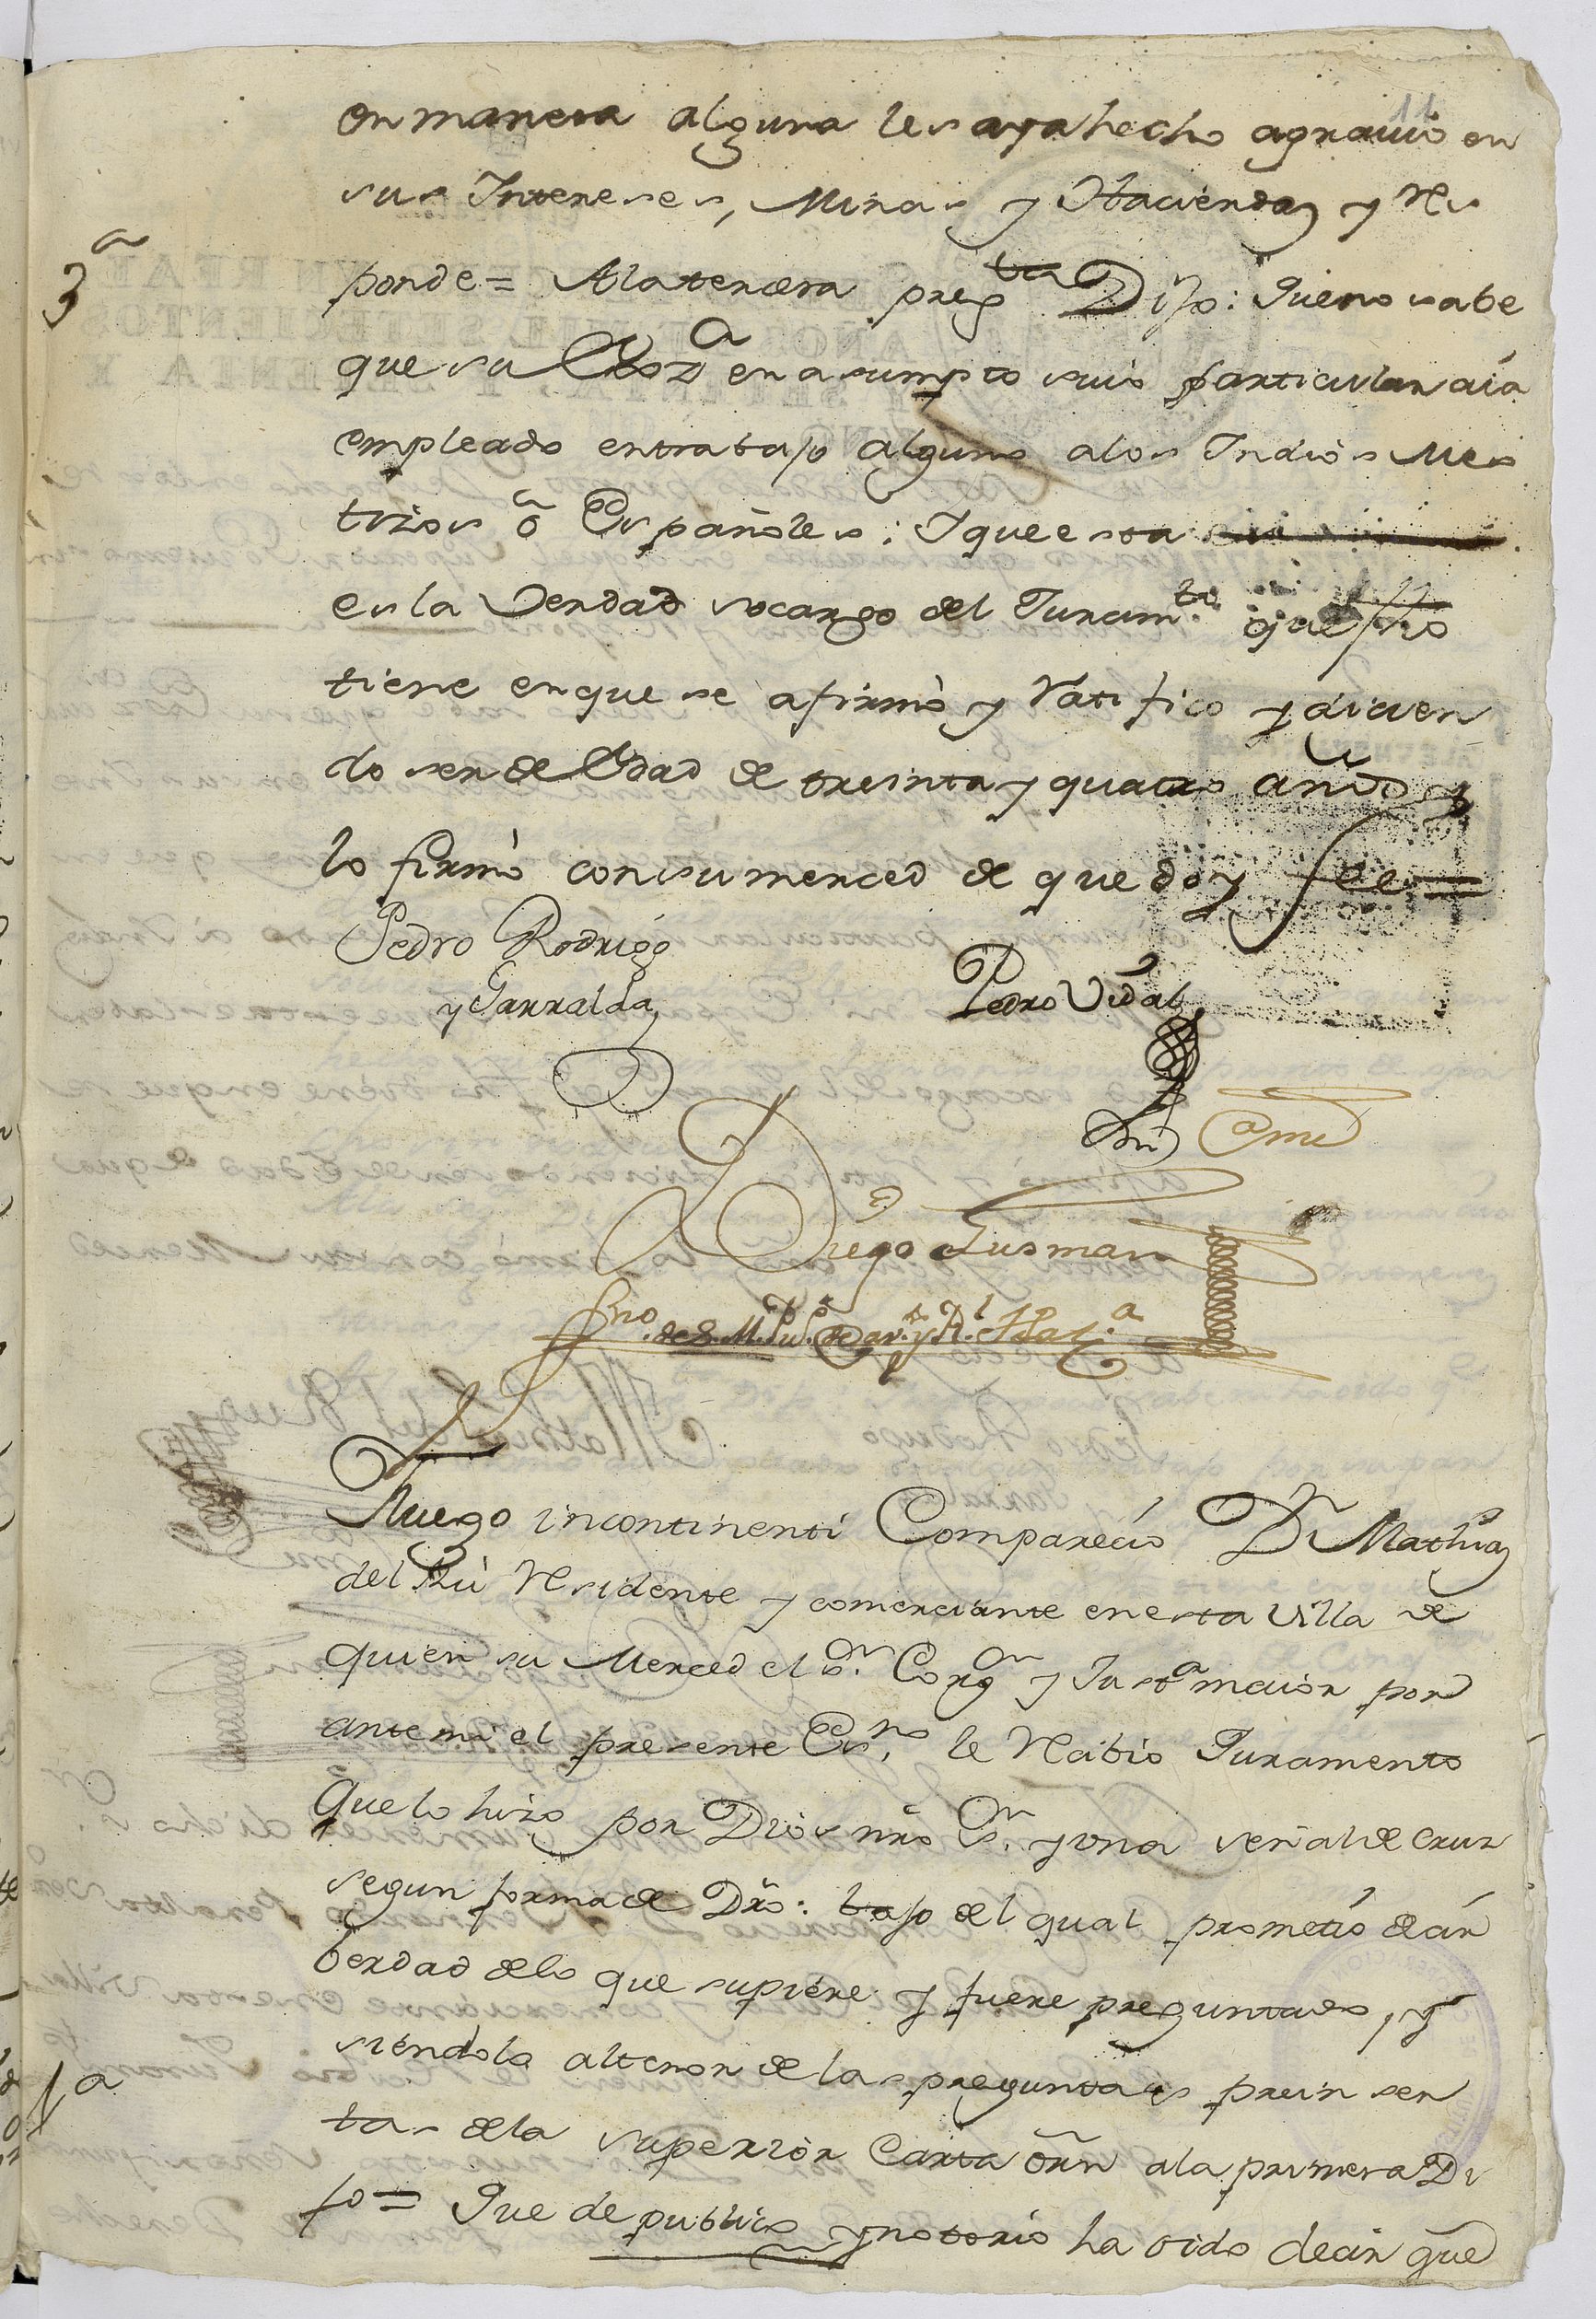 11
en manera alguna les aya hecho agravio en
sus Intereses, Minas y Haciendas y res
3ª
ponde = A la tercera pregta Dijo: Que no sabe
que su en asumpto suio particular aia
empleado en trabajo alguno a los Indios Mes
tizos ô Españoles: Y que esta
es la Verdad so cargo del Juramto que fho
tiene en que se afirmò y ratifico y dicien
do ser de Edad de treinta y quatro años y
lo firmò con su merced de que doy fee =
Pedro Rodrigo
y Garralda
Pedro Vidal
Ante mi
Diego Gusman
Sno. de S. M. Puco. de Cavdo. y Rl. Hazda.
Luego incontinenti Comparecio Dn Mathias
del Rû Residente y comerciante en esta Villa de
quien su Merced el Sr. Corgor y Justa maior por
ante mi el presente Esno. le Recibio Juramento
que lo hizo por Dios nro Sr. y una señal de cruz
segun forma de Dro: bajo del qual prometio decir
berdad de lo que supiere y fuere preguntado, y
siendolo al tenor de las preguntas preinser
1ª
tas de la superior Carta orn a la primera Di
jo = Que de publico y notorio ha oido decir que